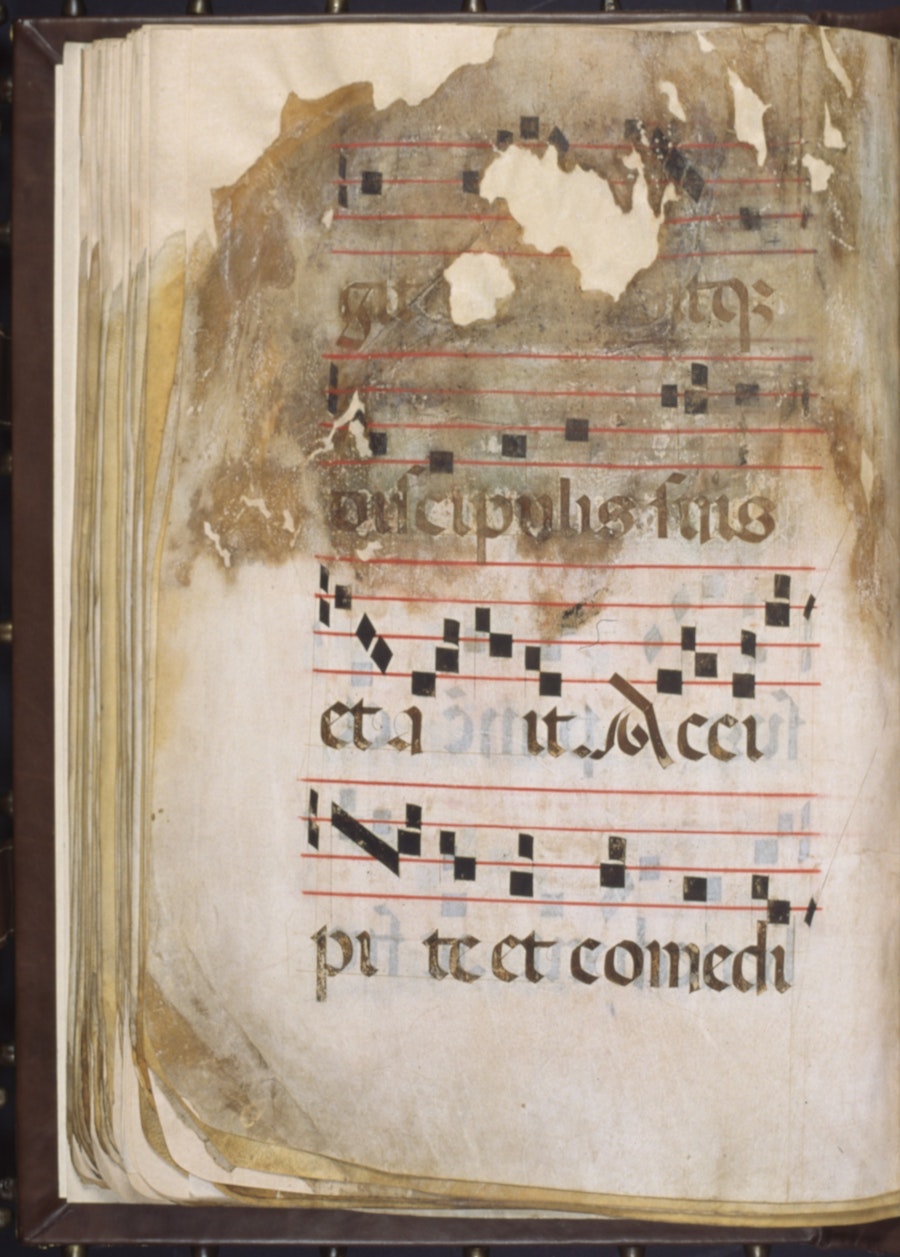 git itq;
discipulis suis
et a it. Acci
pi te et comedi